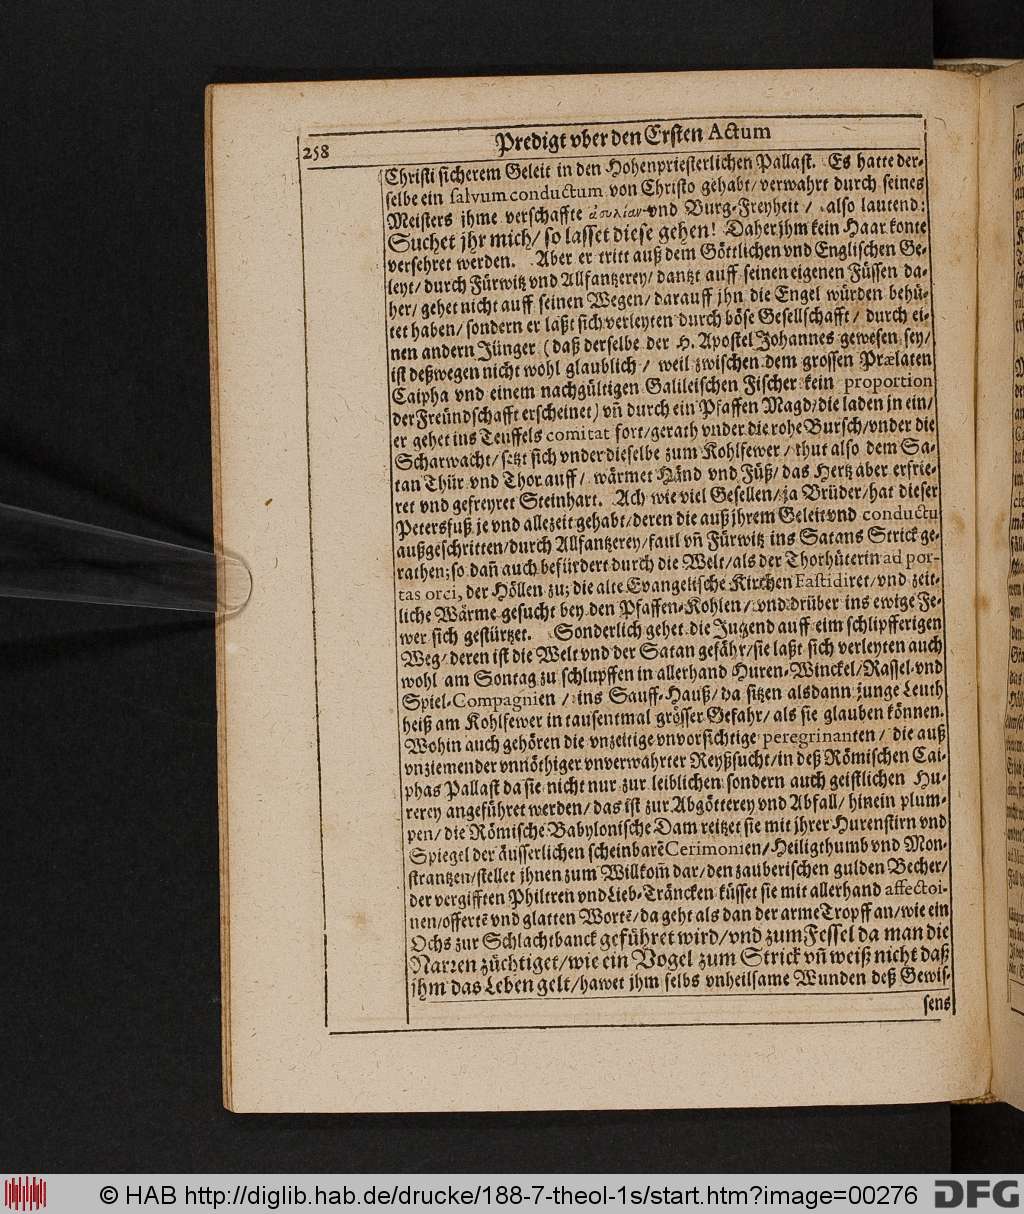 258
Predigt vber den Ersten Actum
Christi sicherem Geleit in den Hohenpriesterlichen Pallast. Es hatte der-
selbe ein salvum conductum von Christo gehabt/ verwahrt durch seines
Meisters jhme verschaffte ἀσυλίαν vnd Burg-Freyheit / also lautend:
Suchet jhr mich/ so lasset diese gehen! Daher jhm kein Haar konte
versehret werden. Aber er tritt auß dem Göttlichen vnd Englischen Ge-
leyt/ durch Fürwitz vnd Allfantzerey/ dantzt auff seinen eigenen Füssen da-
her/ gehet nicht auff seinen Wegen/ darauff jhn die Engel würden behü-
tet haben/ sondern er laßt sich verleyten durch böse Gesellschafft / durch ei-
nen andern Jünger (daß derselbe der H. Apostel Johannes gewesen sey/
ist deßwegen nicht wohl glaublich / weil zwischen dem grossen Prælaten
Caipha vnd einem nachgültigen Galileischen Fischer kein proportion
der Freündschafft erscheinet) vñ durch ein Pfaffen Magd/ die laden jn ein/
er gehet ins Teuffels comitat fort/ gerath vnder die rohe Bursch/ vnder die
Scharwacht/ setzt sich vnder dieselbe zum Kohlfewer / thut also dem Sa-
tan Thür vnd Thor auff / wärmet Händ vnd Füß/ das Hertz aber erfrie-
ret vnd gefreyret Steinhart. Ach wie viel Gesellen/ ja Brüder/ hat dieser
Petersfuß je vnd allezeit gehabt/ deren die auß jhrem Geleit vnd conductu
außgeschritten/ durch Allfantzerey/ faul vñ Fürwitz ins Satans Strick ge-
rathen; so dañ auch befürdert durch die Welt/ als der Thorhüterin ad por-
tas orci, der Höllen zu; die alte Evangelische Kirchen Fastidiret/ vnd zeit-
liche Wärme gesucht bey den Pfaffen-Kohlen/ vnd drüber ins ewige Fe-
wer sich gestürtzet. Sonderlich gehet die Jugend auff eim schlipfferigen
Weg/ deren ist die Welt vnd der Satan gefähr/ sie laßt sich verleyten auch
wohl am Sontag zu schlupffen in allerhand Huren-Winckel/ Rassel- vnd
Spiel-Compagnien / ins Sauff-Hauß/ da sitzen alsdann junge Leuth
heiß am Kohlfewer in tausentmal grösser Gefahr/ als sie glauben können.
Wohin auch gehören die vnzeitige vnvorsichtige peregrinanten/ die auß
vnziemender vnnöthiger vnverwahrter Reyßsucht/ in deß Römischen Cai-
phas Pallast da sie nicht nur zur leiblichen sondern auch geistlichen Hu-
rerey angeführet werden/ das ist zur Abgötterey vnd Abfall/ hinein plum-
pen/ die Römische Babylonische Dam reitzet sie mit jhrer Hurenstirn vnd
Spiegel der äusserlichen scheinbarē Cerimonien/ Heiligthumb vnd Mon-
strantzen/ stellet jhnen zum Willkom̃ dar/ den zauberischen gulden Becher/
der vergifften Philtren vnd Lieb-Träncken küsset sie mit allerhand affectoi-
nen/ offertē vnd glatten Wortē/ da geht als dan der arme Tropff an/ wie ein
Ochs zur Schlachtbanck geführet wird/ vnd zum Fessel da man die
Narren züchtiget/ wie ein Vogel zum Strick vñ weiß nicht daß
jhm das Leben gelt/ hawet jhm selbs vnheilsame Wunden deß Gewis-
sens
© HAB http://diglib.hab.de/drucke/188-7-theol-1s/start.htm?image=00276
DFG